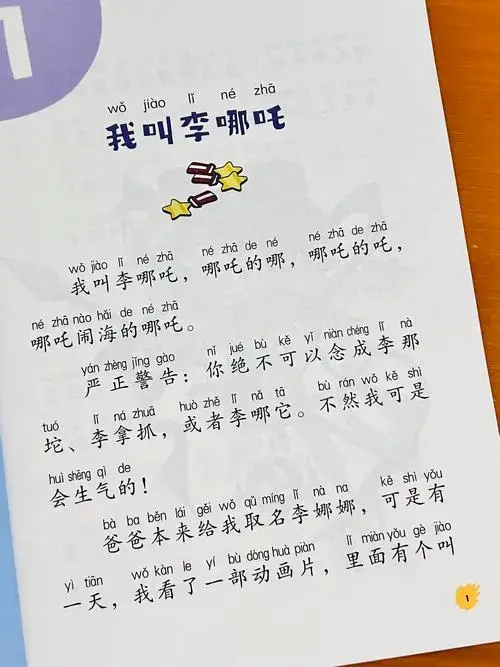 1
wǒ jiào lǐ né zhā
我叫李哪吒
wǒ jiào lǐ né zhā né zhā de né né zhā de zhā
我叫李哪吒，哪吒的哪，哪吒的吒，
né zhā nào hǎi de né zhā
哪吒闹海的哪吒。
yán zhèng jǐng gào nǐ jué bù kě yǐ niàn chéng lǐ nà
严正警告：你绝不可以念成李那
tuó lǐ ná zhuā huò zhě lǐ nǎ tā bù rán wǒ kě shì
坨、李拿抓，或者李哪它。不然我可是
huì shēng qì de
会生气的！
bà ba běn lái gěi wǒ qǔ míng lǐ nà na kě shì yǒu
爸爸本来给我取名李娜娜，可是有
yì tiān wǒ kàn le yí bù dòng huà piàn lǐ miàn yǒu gè jiào
一天，我看了一部动画片，里面有个叫
1